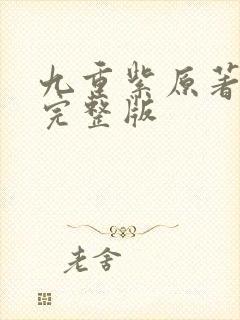 九重紫原著
完整版
老舍